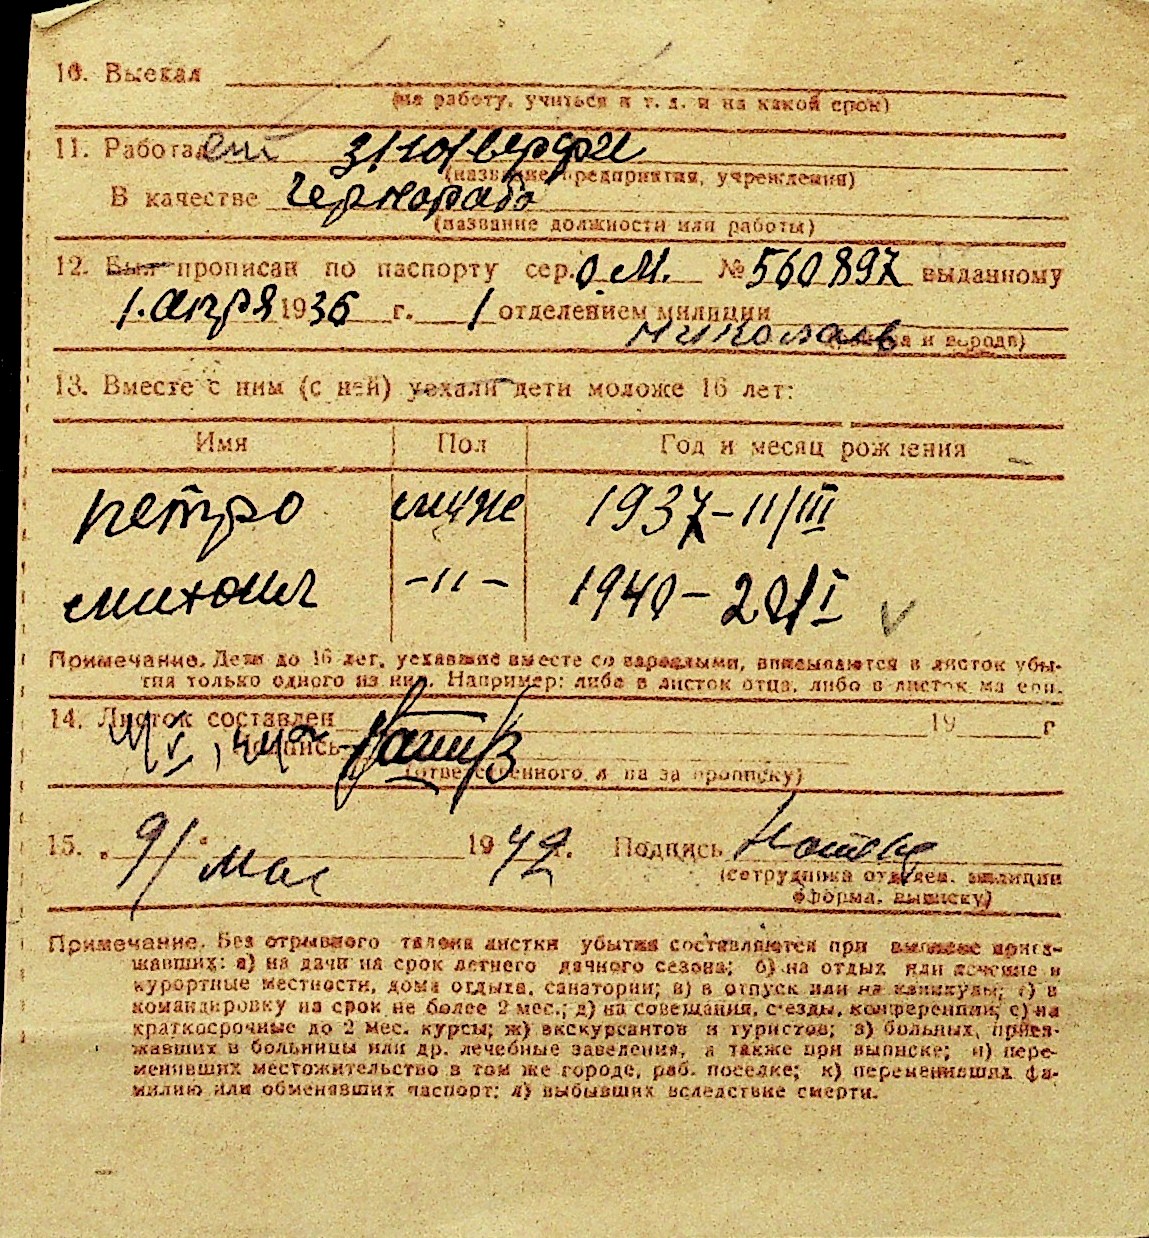 10. Выехал
(на работу, учиться и т. д. и на какой срок)
11. Работает
(название предприятия, учреждения)
В качестве Чернорабо
(название должности или работы)
12. Был прописан по паспорту сер. О.М. № 560897 выданному
1. апря 1936 г. 1 отделением милиции
Николаев
(района и города)
13. Вместе с ним (с ней) уехали дети моложе 16 лет:
Имя Пол Год и месяц рождения
Петро муже 1937-11/III
Михаил -"- 1940-20/I
Примечание. Дети до 16 лет, уехавшие вместе со взрослыми, вписываются в листок убы-
тия только одного из них. Например: либо в листок отца, либо в листок матери.
14. Листок составлен 19 г
Подпись
(ответственного лица за прописку)
15. 9/ мая 1942 г. Подпись
(сотрудника отделен. милиции
оформл. выписку)
Примечание. Без отрывного талона листки убытия составляются при выписке приез-
жавших: а) на дачи на срок летнего дачного сезона; б) на отдых или лечение в
курортные местности, дома отдыха, санатории; в) в отпуск или на каникулы; г) в
командировку на срок не более 2 мес.; д) на совещания, съезды, конференции; е) на
краткосрочные до 2 мес. курсы; ж) экскурсантов и туристов; з) больных, приез-
жавших в больницы или др. лечебные заведения, а также при выписке; и) пере-
менивших местожительство в том же городе, раб. поселке; к) переменивших фа-
милию или обменявших паспорт; л) выбывших вследствие смерти.